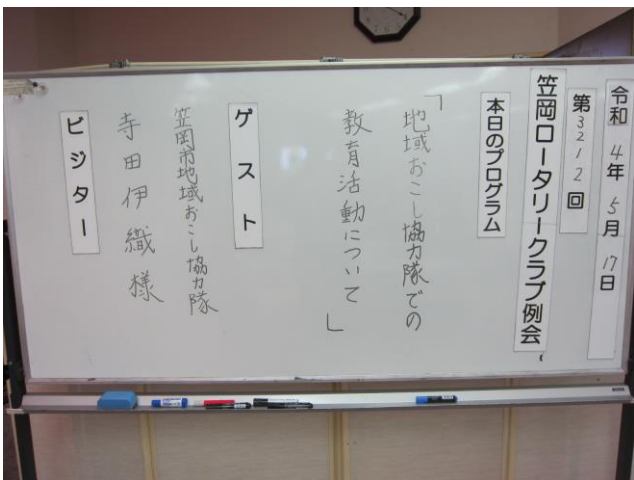 令和4年5月17日
第3212回
笠岡ロータリークラブ例会
本日のプログラム
「地域おこし協力隊での
教育活動について」
ゲスト
笠岡市地域おこし協力隊
寺田伊織様
ビジター